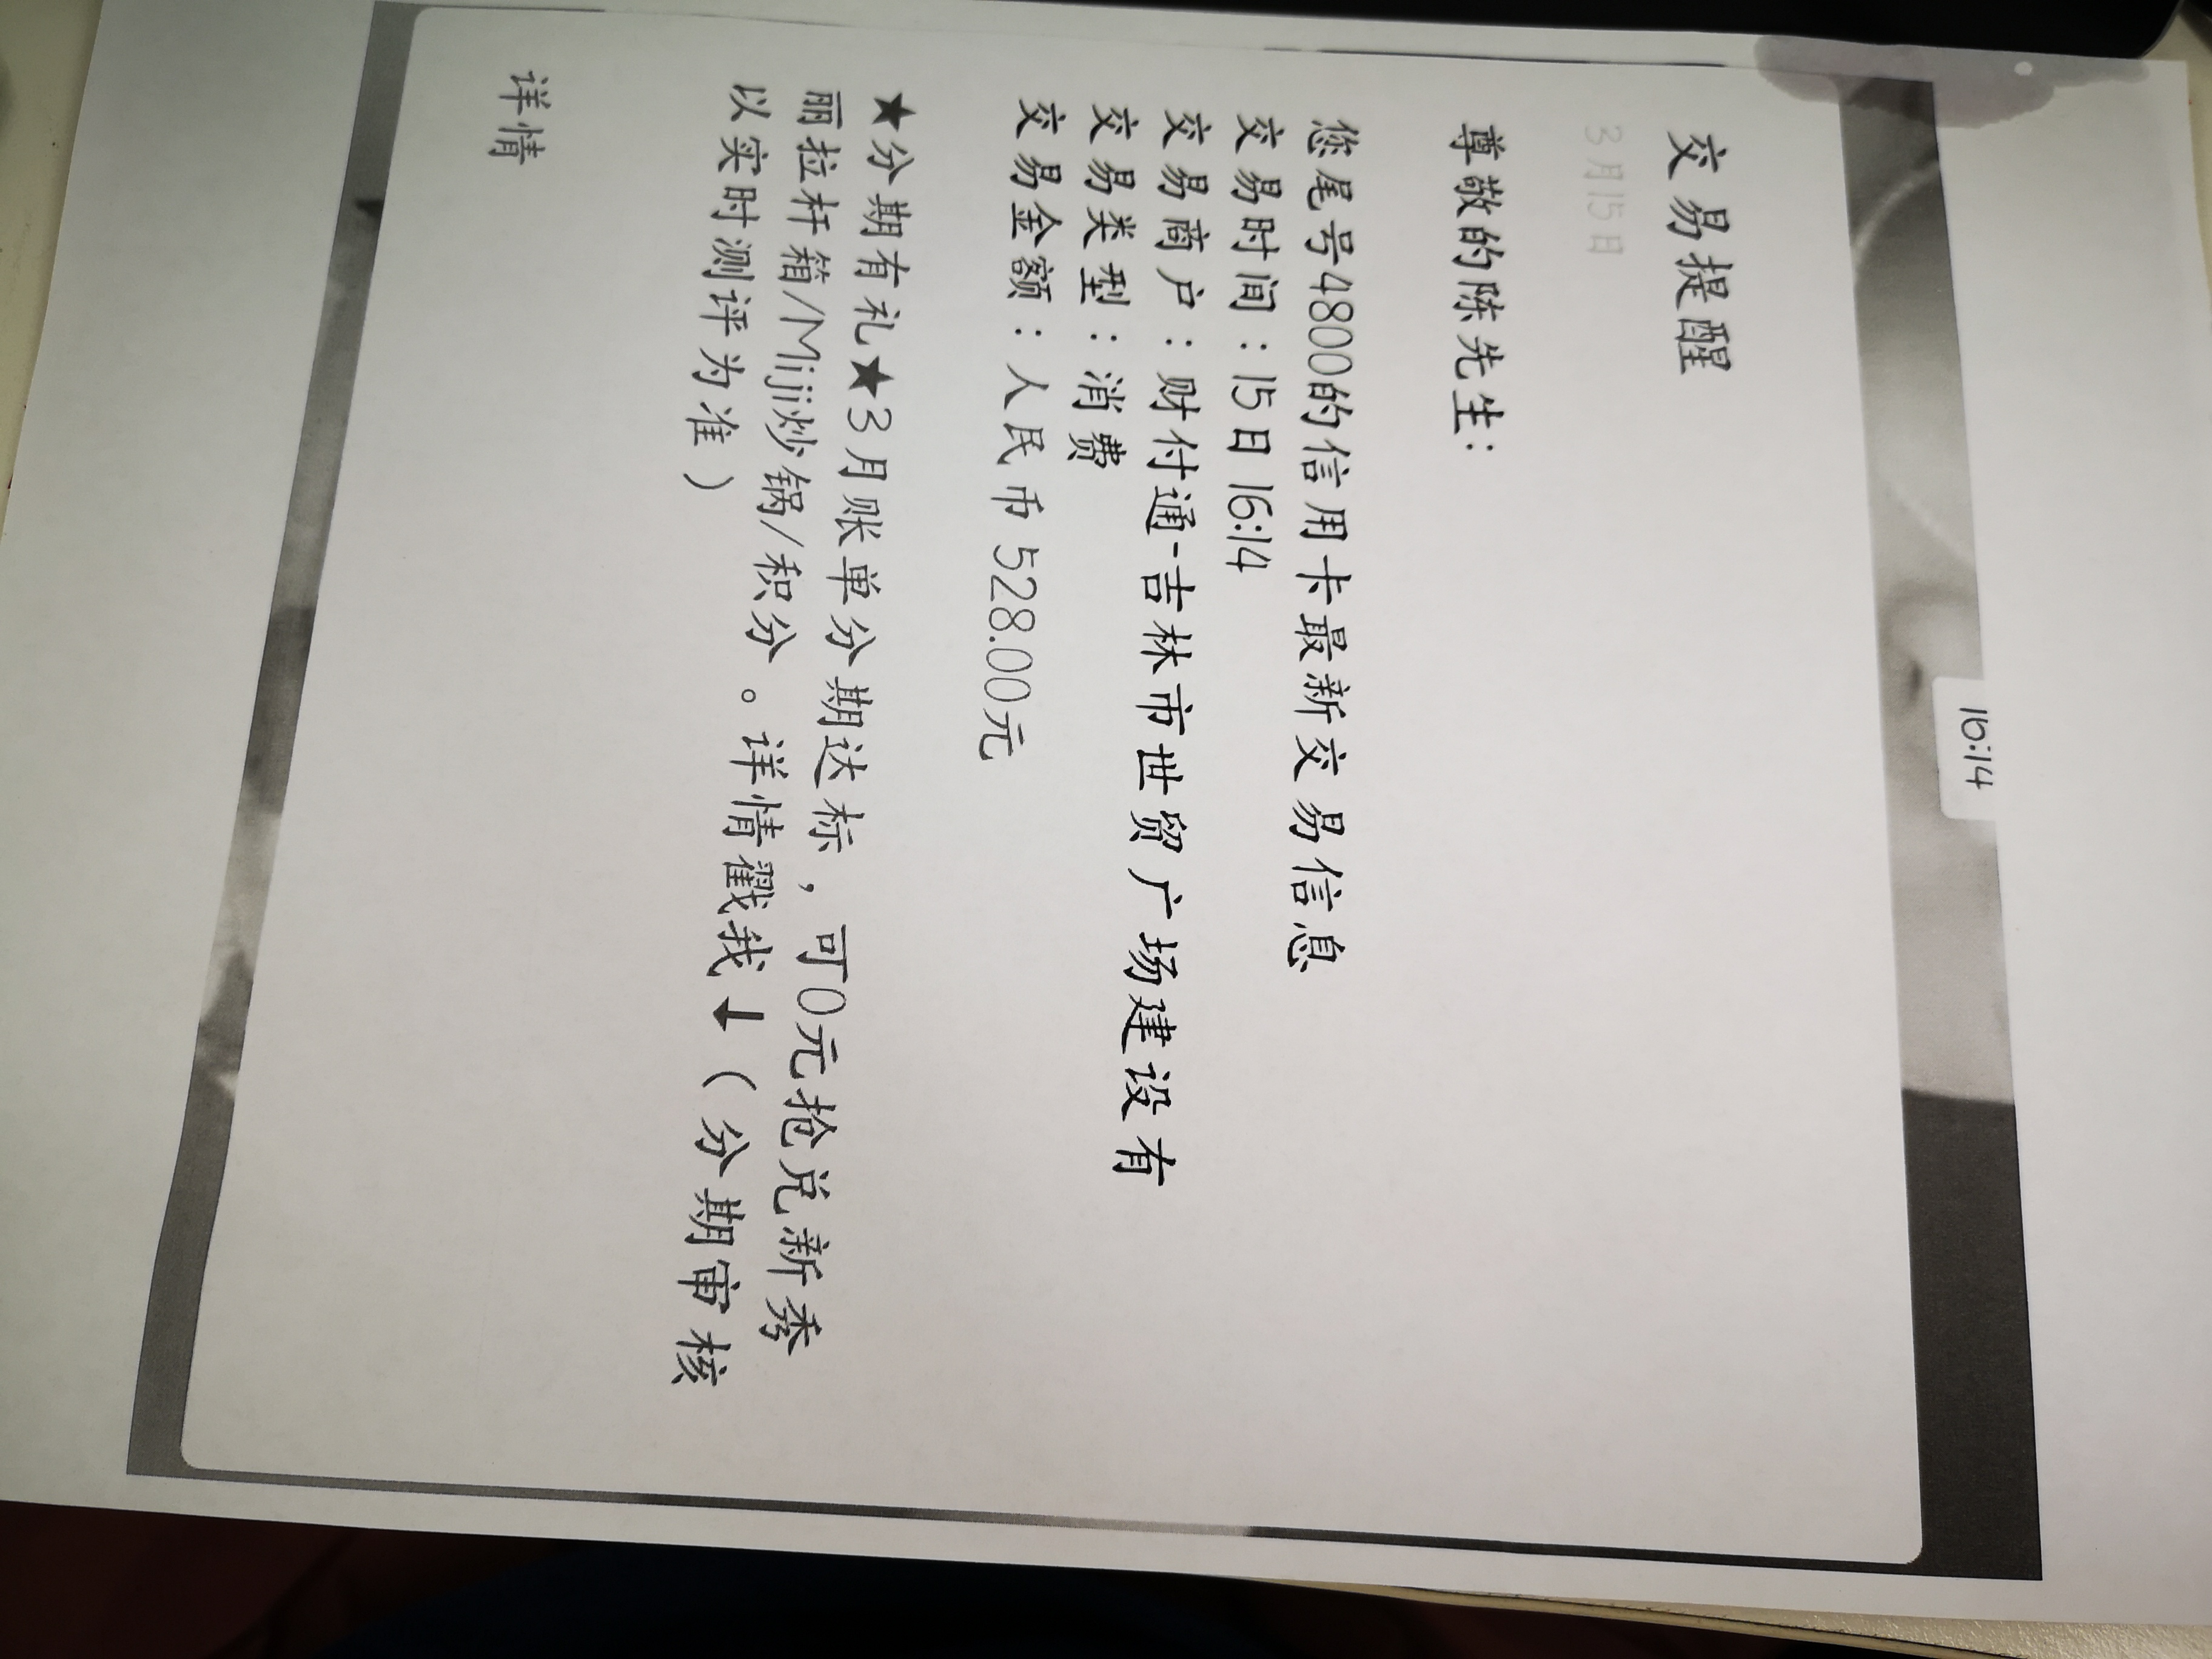 16:14
交易提醒
3月15日
尊敬的陈先生：
您尾号4800的信用卡最新交易信息
交易时间：15日16:14
交易商户：财付通-吉林市世贸广场建设有
交易类型：消费
交易金额：人民币528.00元
★分期有礼★3月账单分期达标，可0元抢兑新秀
丽拉杆箱/Miji炒锅/积分。详情戳我⬇（分期审核
以实时测评为准）
详情